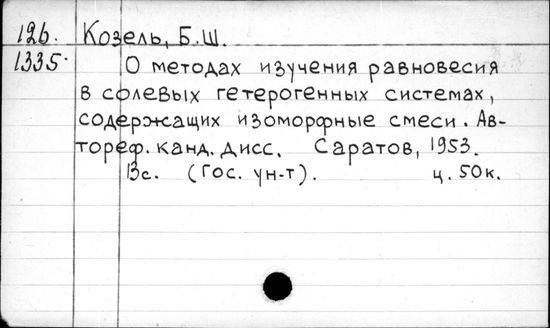 126. Козель, Б.Ш.
1335. О методах изучения равновесия
в солевых гетерогенных системах,
содержащих изоморфные смеси. Ав-
тореф. канд. дисс. Саратов, 1953.
13с. (Гос. ун-т). ц. 50к.